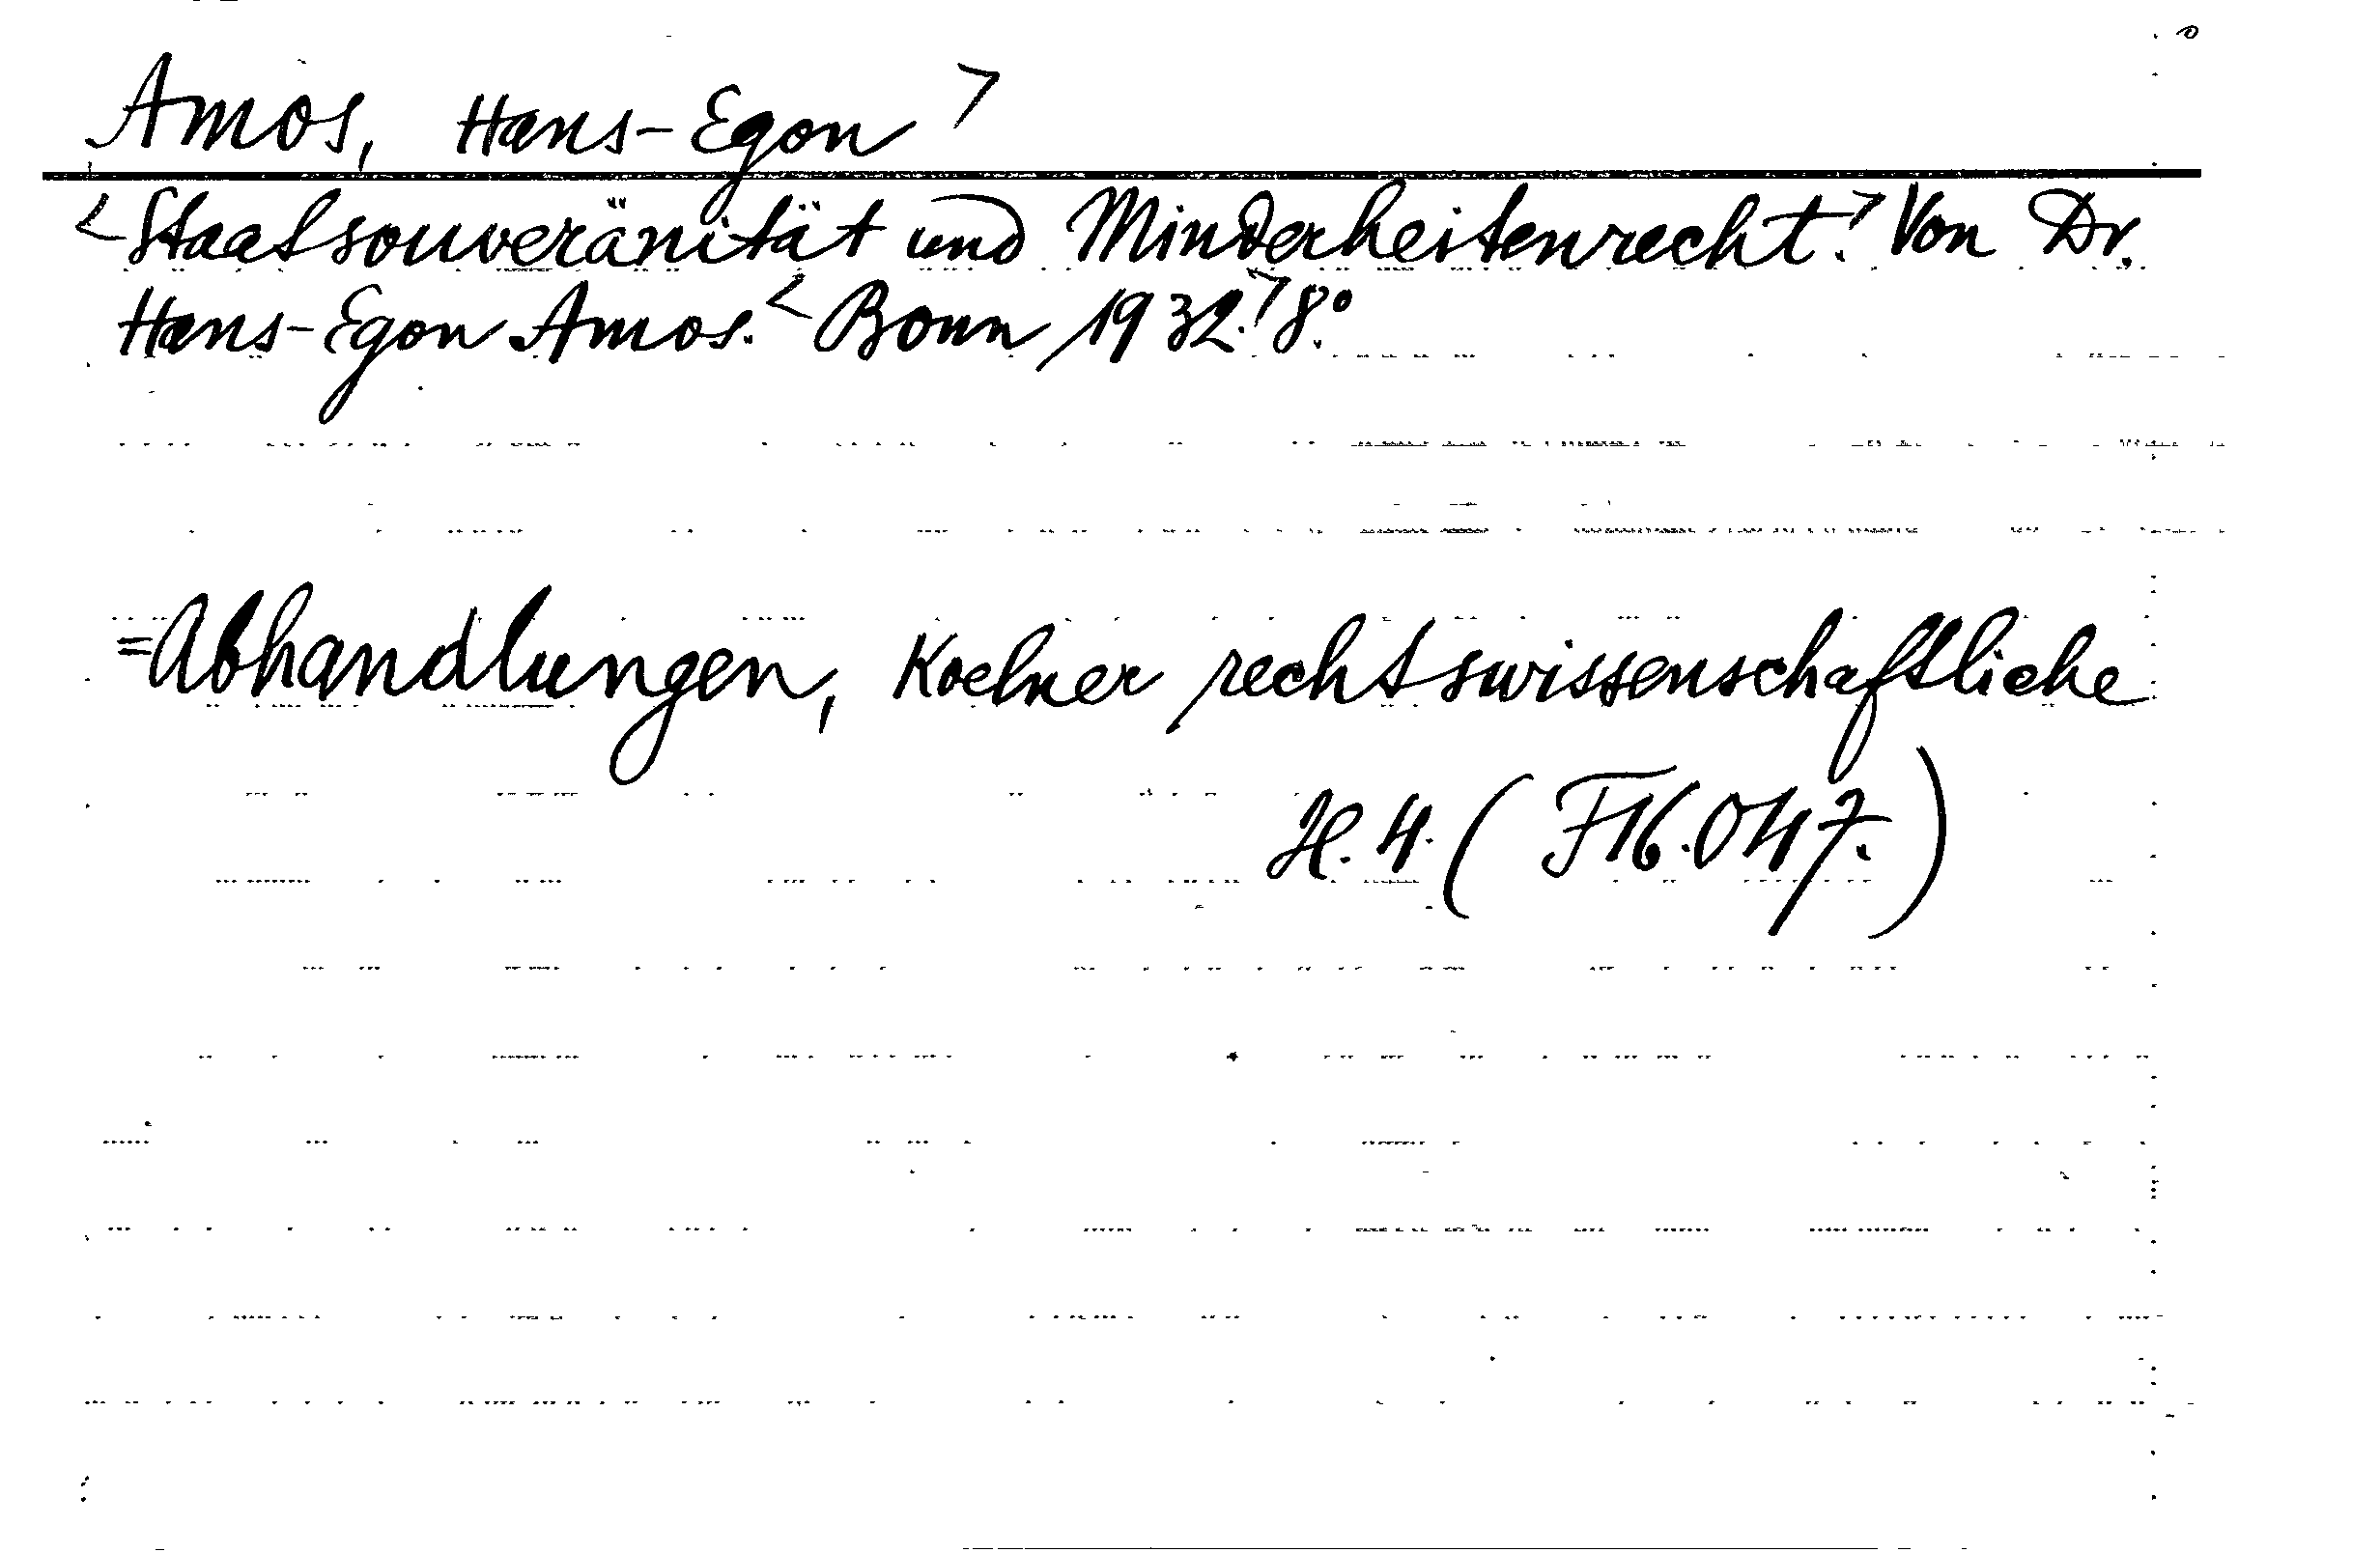 Amos, Hans-Egon >
<Staatsouveränität und Minderheitenrecht.> Von Dr.
Hans-Egon Amos. <Bonn 1932.> 8°.
=Abhandlungen, Koelner rechtswissenschaftliche
H. 4. (F16.047.)